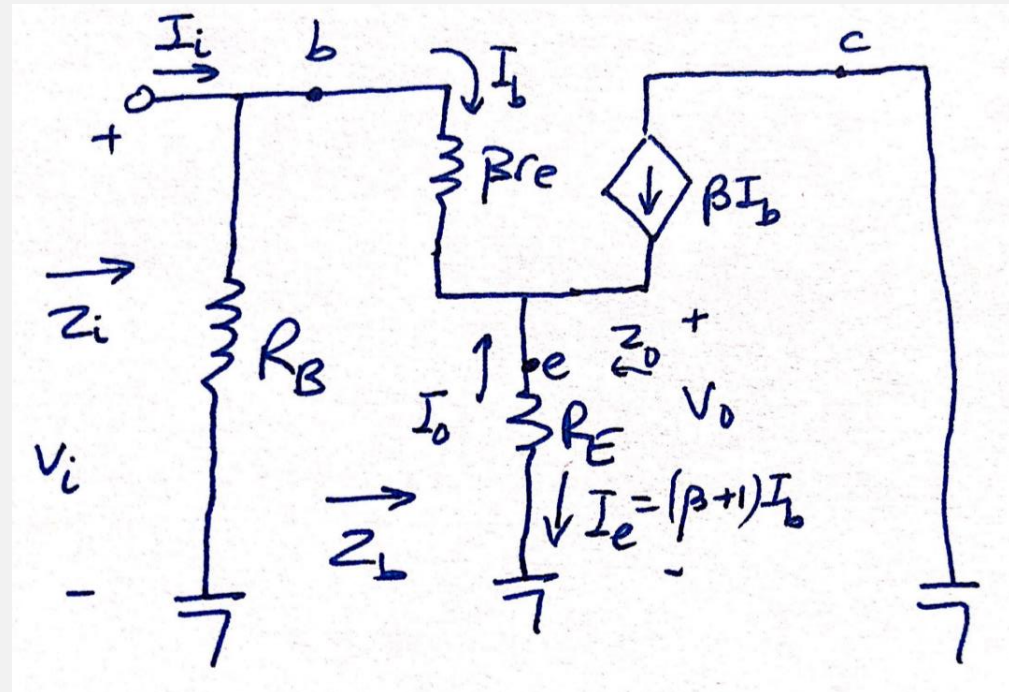 Ii
b
Ib
c
+
βre
βIb
Zi
RB
Zo
+
e
Io
Vo
RE
Vi
Zb
Ie=(β+1)Ib
-
-